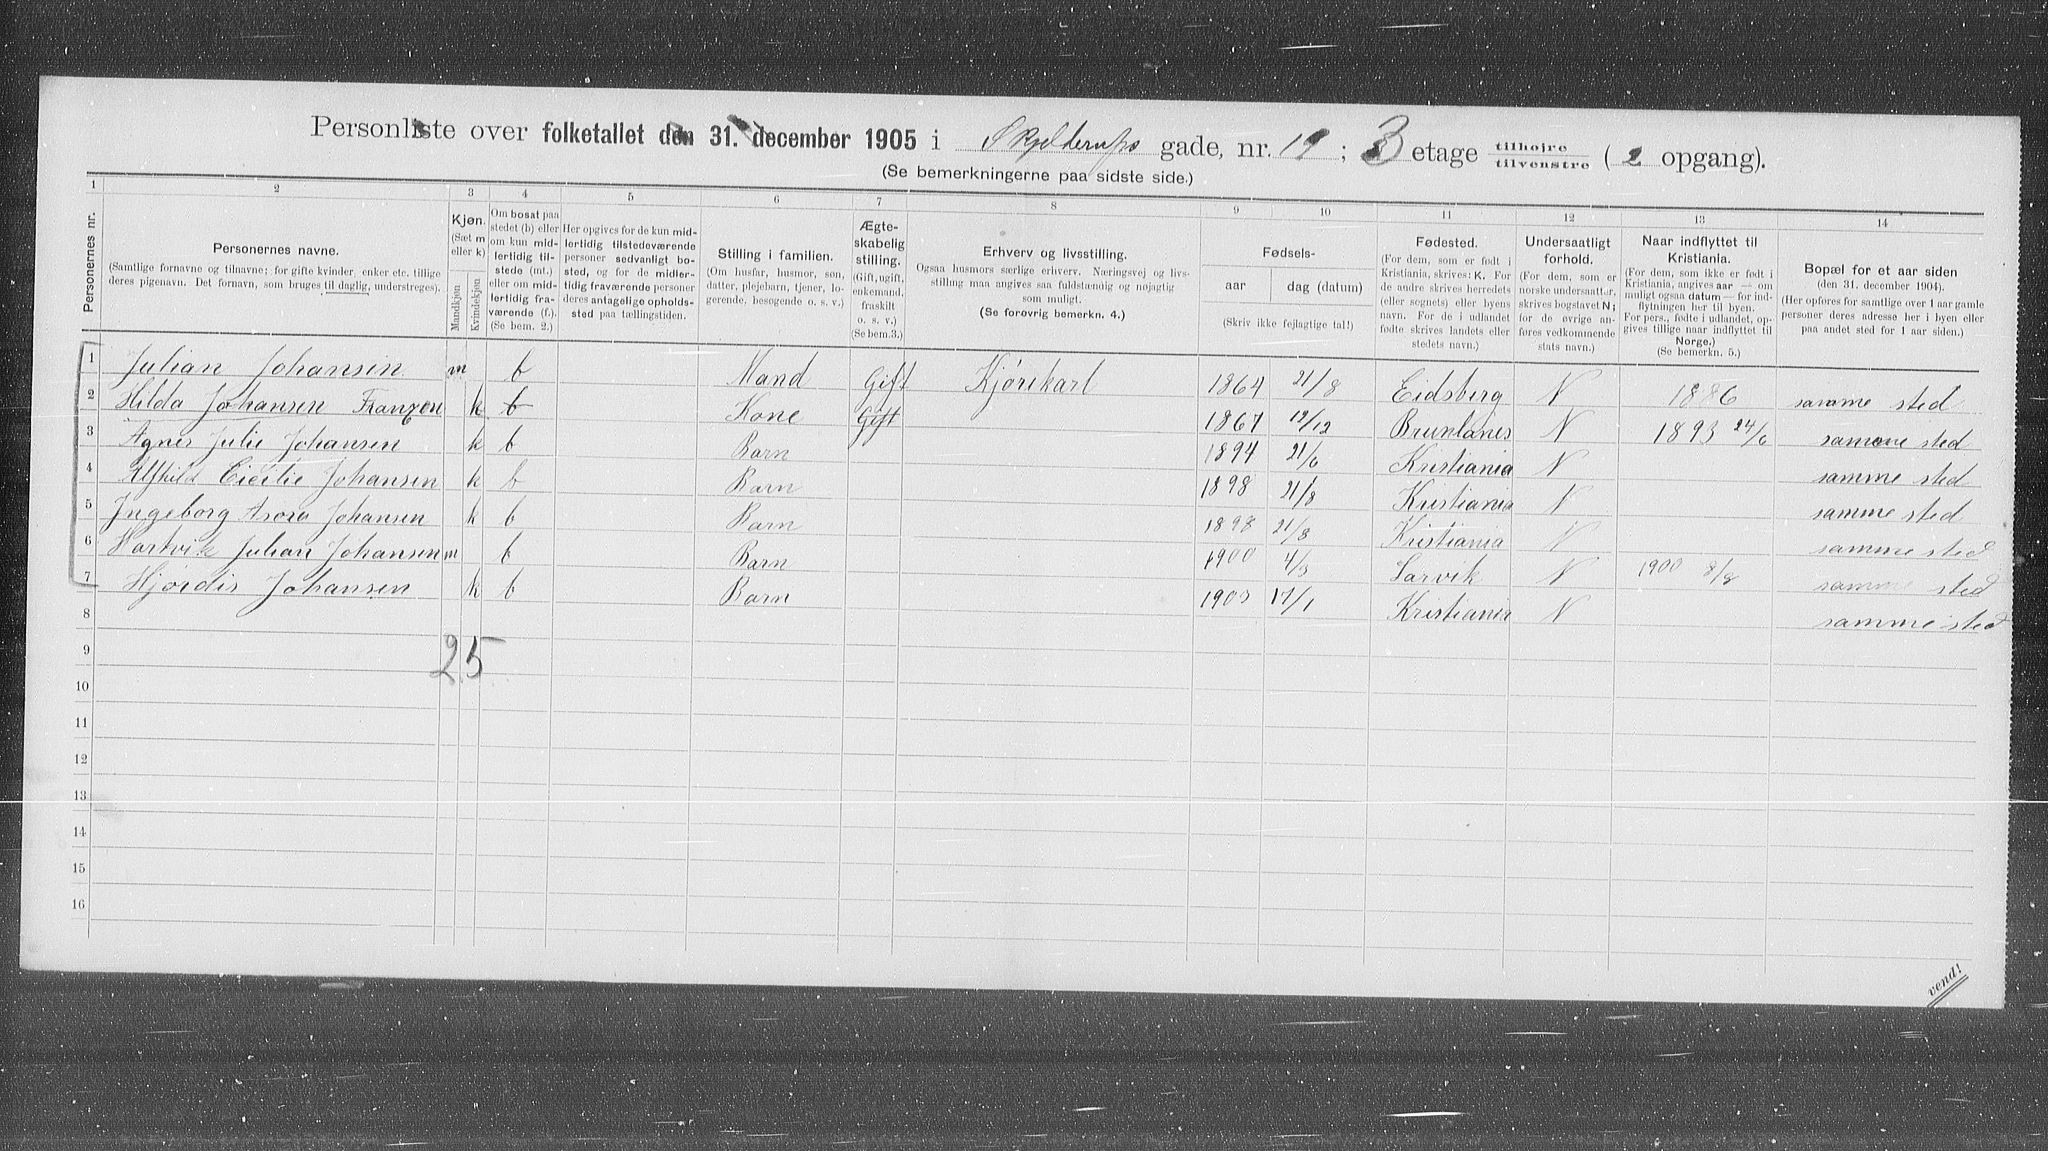 Personliste over folketallet den 31. december 1905 i Skjelderups gade, nr. 19; 3 etage tilhøjre tilvenstre (2 opgang).
(Se bemerkningerne paa sidste side.)
1 2 3 4 5 6 7 8 9 10 11 12 13 14
Personernes nr.
Personernes navne.
(Samtlige fornavne og tilnavne; for gifte kvinder, enker etc. tillige deres pigenavn. Det fornavn, som bruges til daglig, understreges).
Kjøn.
(Sæt m eller k)
Mandkjøn
Kvindekjøn
Om bosat paa stedet (b) eller om kun midlertidig tilstede (mt.) eller om midlertidig fraværende (f.). (Se bem. 2.)
Her opgives for de kun midlertidig tilstedeværende personer sedvanlig bosted, og for de midlertidig fraværende personer deres antagelige opholdssted paa tællingstiden.
Stilling i familien.
(Om husfar, husmor, søn, datter, plejebarn, tjener, logerende, besøgende o. s. v.)
Ægteskabelig stilling.
(Gift, ugift, enkemand, fraskilt o. s. v.)
(Se bem.3.)
Erhverv og livsstilling.
Ogsaa husmors særlige erhverv. Næringsvej og livsstilling maa angives saa fuldstændig og nøjagtig som muligt.
(Se forøvrig bemerkn. 4.)
Fødsels-
aar dag (datum)
(Skriv ikke fejlagtige tal!)
Fødested.
(For dem, som er født i Kristiania, skrives: K. For de andre skrives herredets (eller sognets) eller byens navn. For de i udlandet fødte skrives landets eller stedets navn.)
Undersaatligt forhold.
(For dem, som er norske undersaatter, skrives bogstavet N; for de øvrige anføres vedkommende stats navn.)
Naar indflyttet til Kristiania.
(For dem, som ikke er født i Kristiania, angives aar — om muligt ogsaa datum — for indflytningen her til byen. For pers., fødte i udlandet, opgives tillige naar indflyttet til Norge.)
(Se bemerkn. 5.)
Bopæl for et aar siden
(den 31. december 1904).
(Her opføres for samtlige over 1 aar gamle personer deres adresse her i byen eller paa andet sted for 1 aar siden.)
1 Julian Johansen m b Mand Gift Kjørekarl 1864 21/8 Eidsberg N 1886 samme sted
2 Hilda Johansen Franzen k b Kone Gift 1867 12/12 Brunlanes N 1893 24/6 samme sted
3 Agnes Julie Johansen k b Barn 1894 21/6 Kristiania N samme sted
4 Alfhild Cicilie Johansen k b Barn 1898 21/8 Kristiania N samme sted
5 Ingeborg Johansen k b Barn 1898 21/8 Kristiania N samme sted
6 Hartvik Julian Johansen m b Barn 1900 4/3 Larvik N 1900 8/8 samme sted
7 Hjørdis Johansen k b Barn 1903 17/1 Kristiania N samme sted
8
25
9
10
11
12
13
14
15
16
vend!